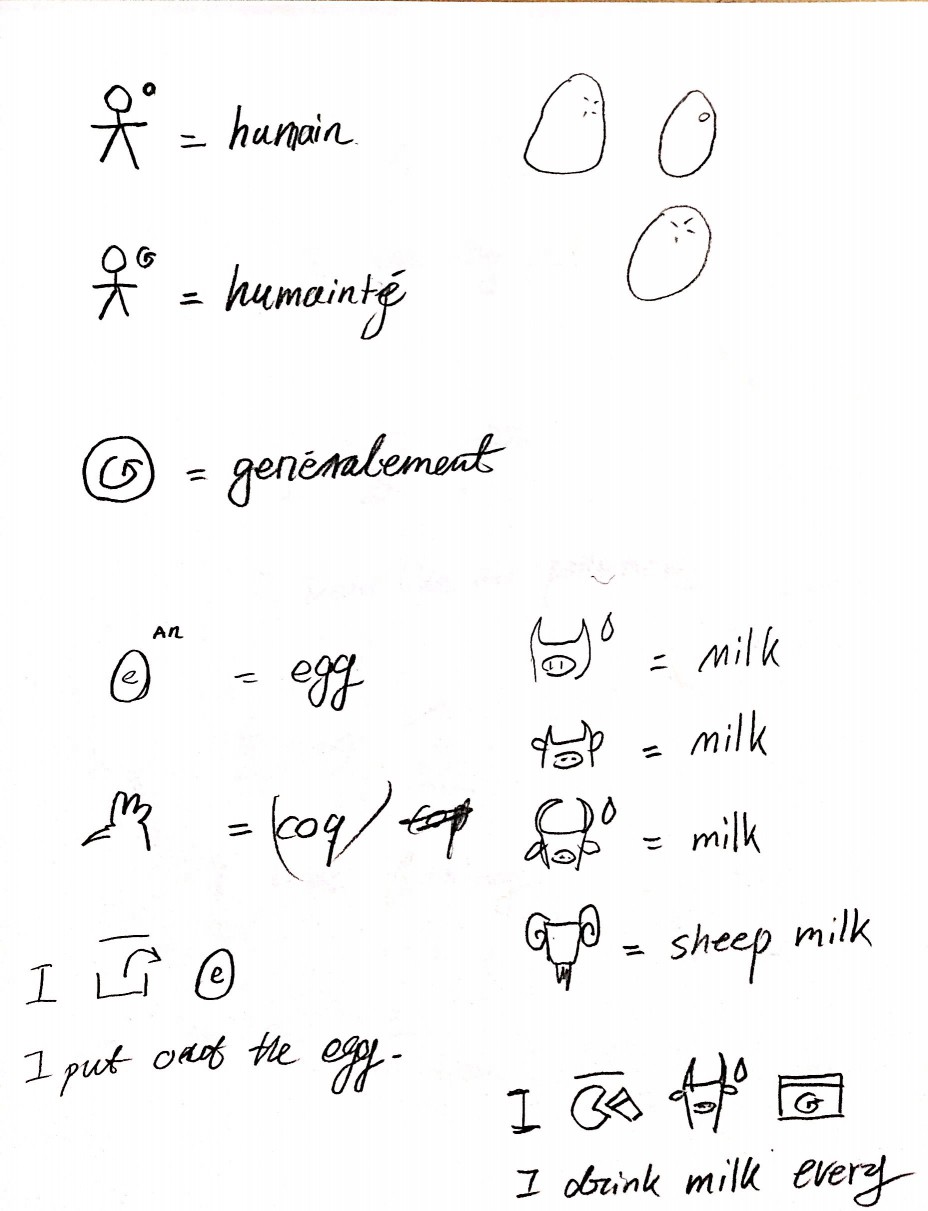 = humain
= humainté
G = genéralement
e An = egg
= (coq)
I e
I put out the egg.
= milk
= milk
= milk
= sheep milk
I G
I drink milk every